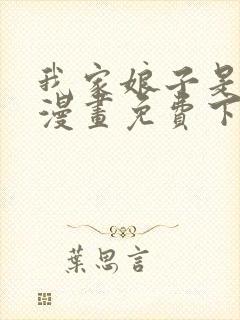 我家娘子是
漫畫免費下
葉思言